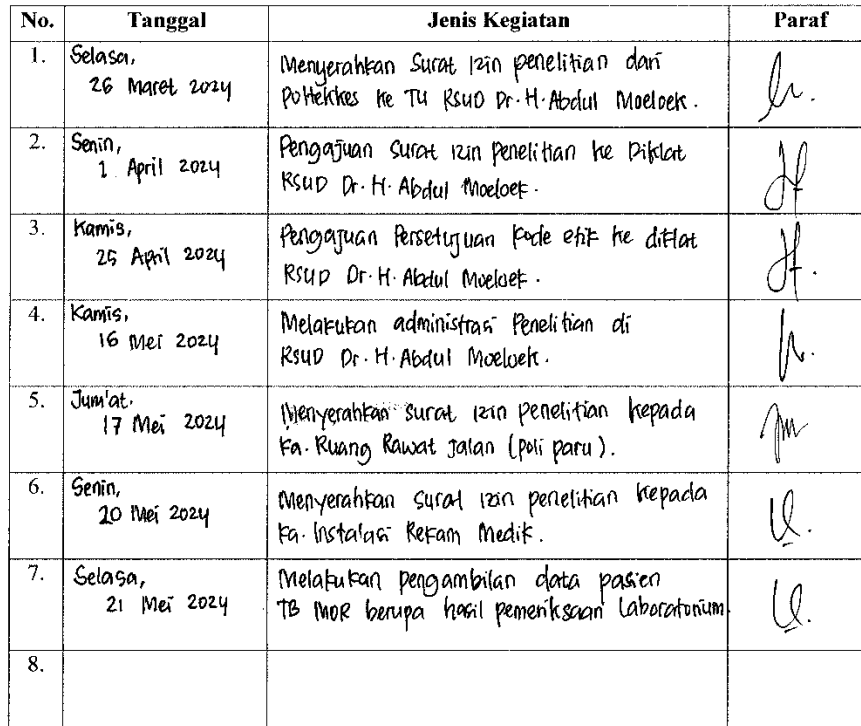 No. Tanggal Jenis Kegiatan Paraf
1. Selasa, 26 Maret 2024
Menyerahkan Surat Izin penelitian dari
Poltekkes ke TU RSUD Dr. H. Abdul Moeloek.
2. Senin, 1 April 2024
Pengajuan Surat izin penelitian ke Diklat
RSUD Dr. H. Abdul Moeloek.
3. Kamis, 25 April 2024
Pengajuan Persetujuan kode etik ke diklat
RSUD Dr. H. Abdul Moeloek.
4. Kamis, 16 Mei 2024
Melakukan administrasi Penelitian di
RSUD Dr. H. Abdul Moeloek.
5. Jum'at. 17 Mei 2024
Menyerahkan surat izin penelitian kepada
Ka. Ruang Rawat Jalan (poli paru).
6. Senin, 20 Mei 2024
Menyerahkan surat izin penelitian kepada
Ka. Instalasi Rekam Medik.
7. Selasa, 21 Mei 2024
Melakukan pengambilan data pasien
TB MDR berupa hasil pemeriksaan Laboratorium.
8.